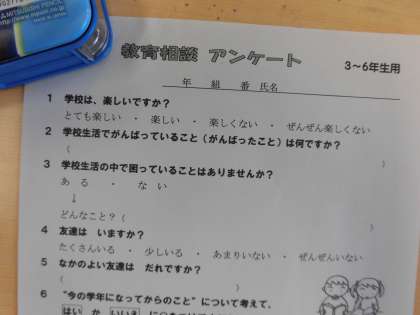 MITSUBISHI PENCIL
教育相談 アンケート
3～6年生用
年 組 番 氏名
1 学校は、楽しいですか？
とても楽しい ・ 楽しい ・ 楽しくない ・ ぜんぜん楽しくない
2 学校生活でがんばっていること（がんばったこと）は何ですか？
（ ）
3 学校生活の中で困っていることはありませんか？
ある ・ ない
↓
どんなこと？（ ）
4 友達は いますか？
たくさんいる ・ 少しいる ・ あまりいない ・ ぜんぜんいない
5 なかのよい友達は だれですか？
（ ）
6 “今の学年になってからのこと”について考えて、
はい か いいえ